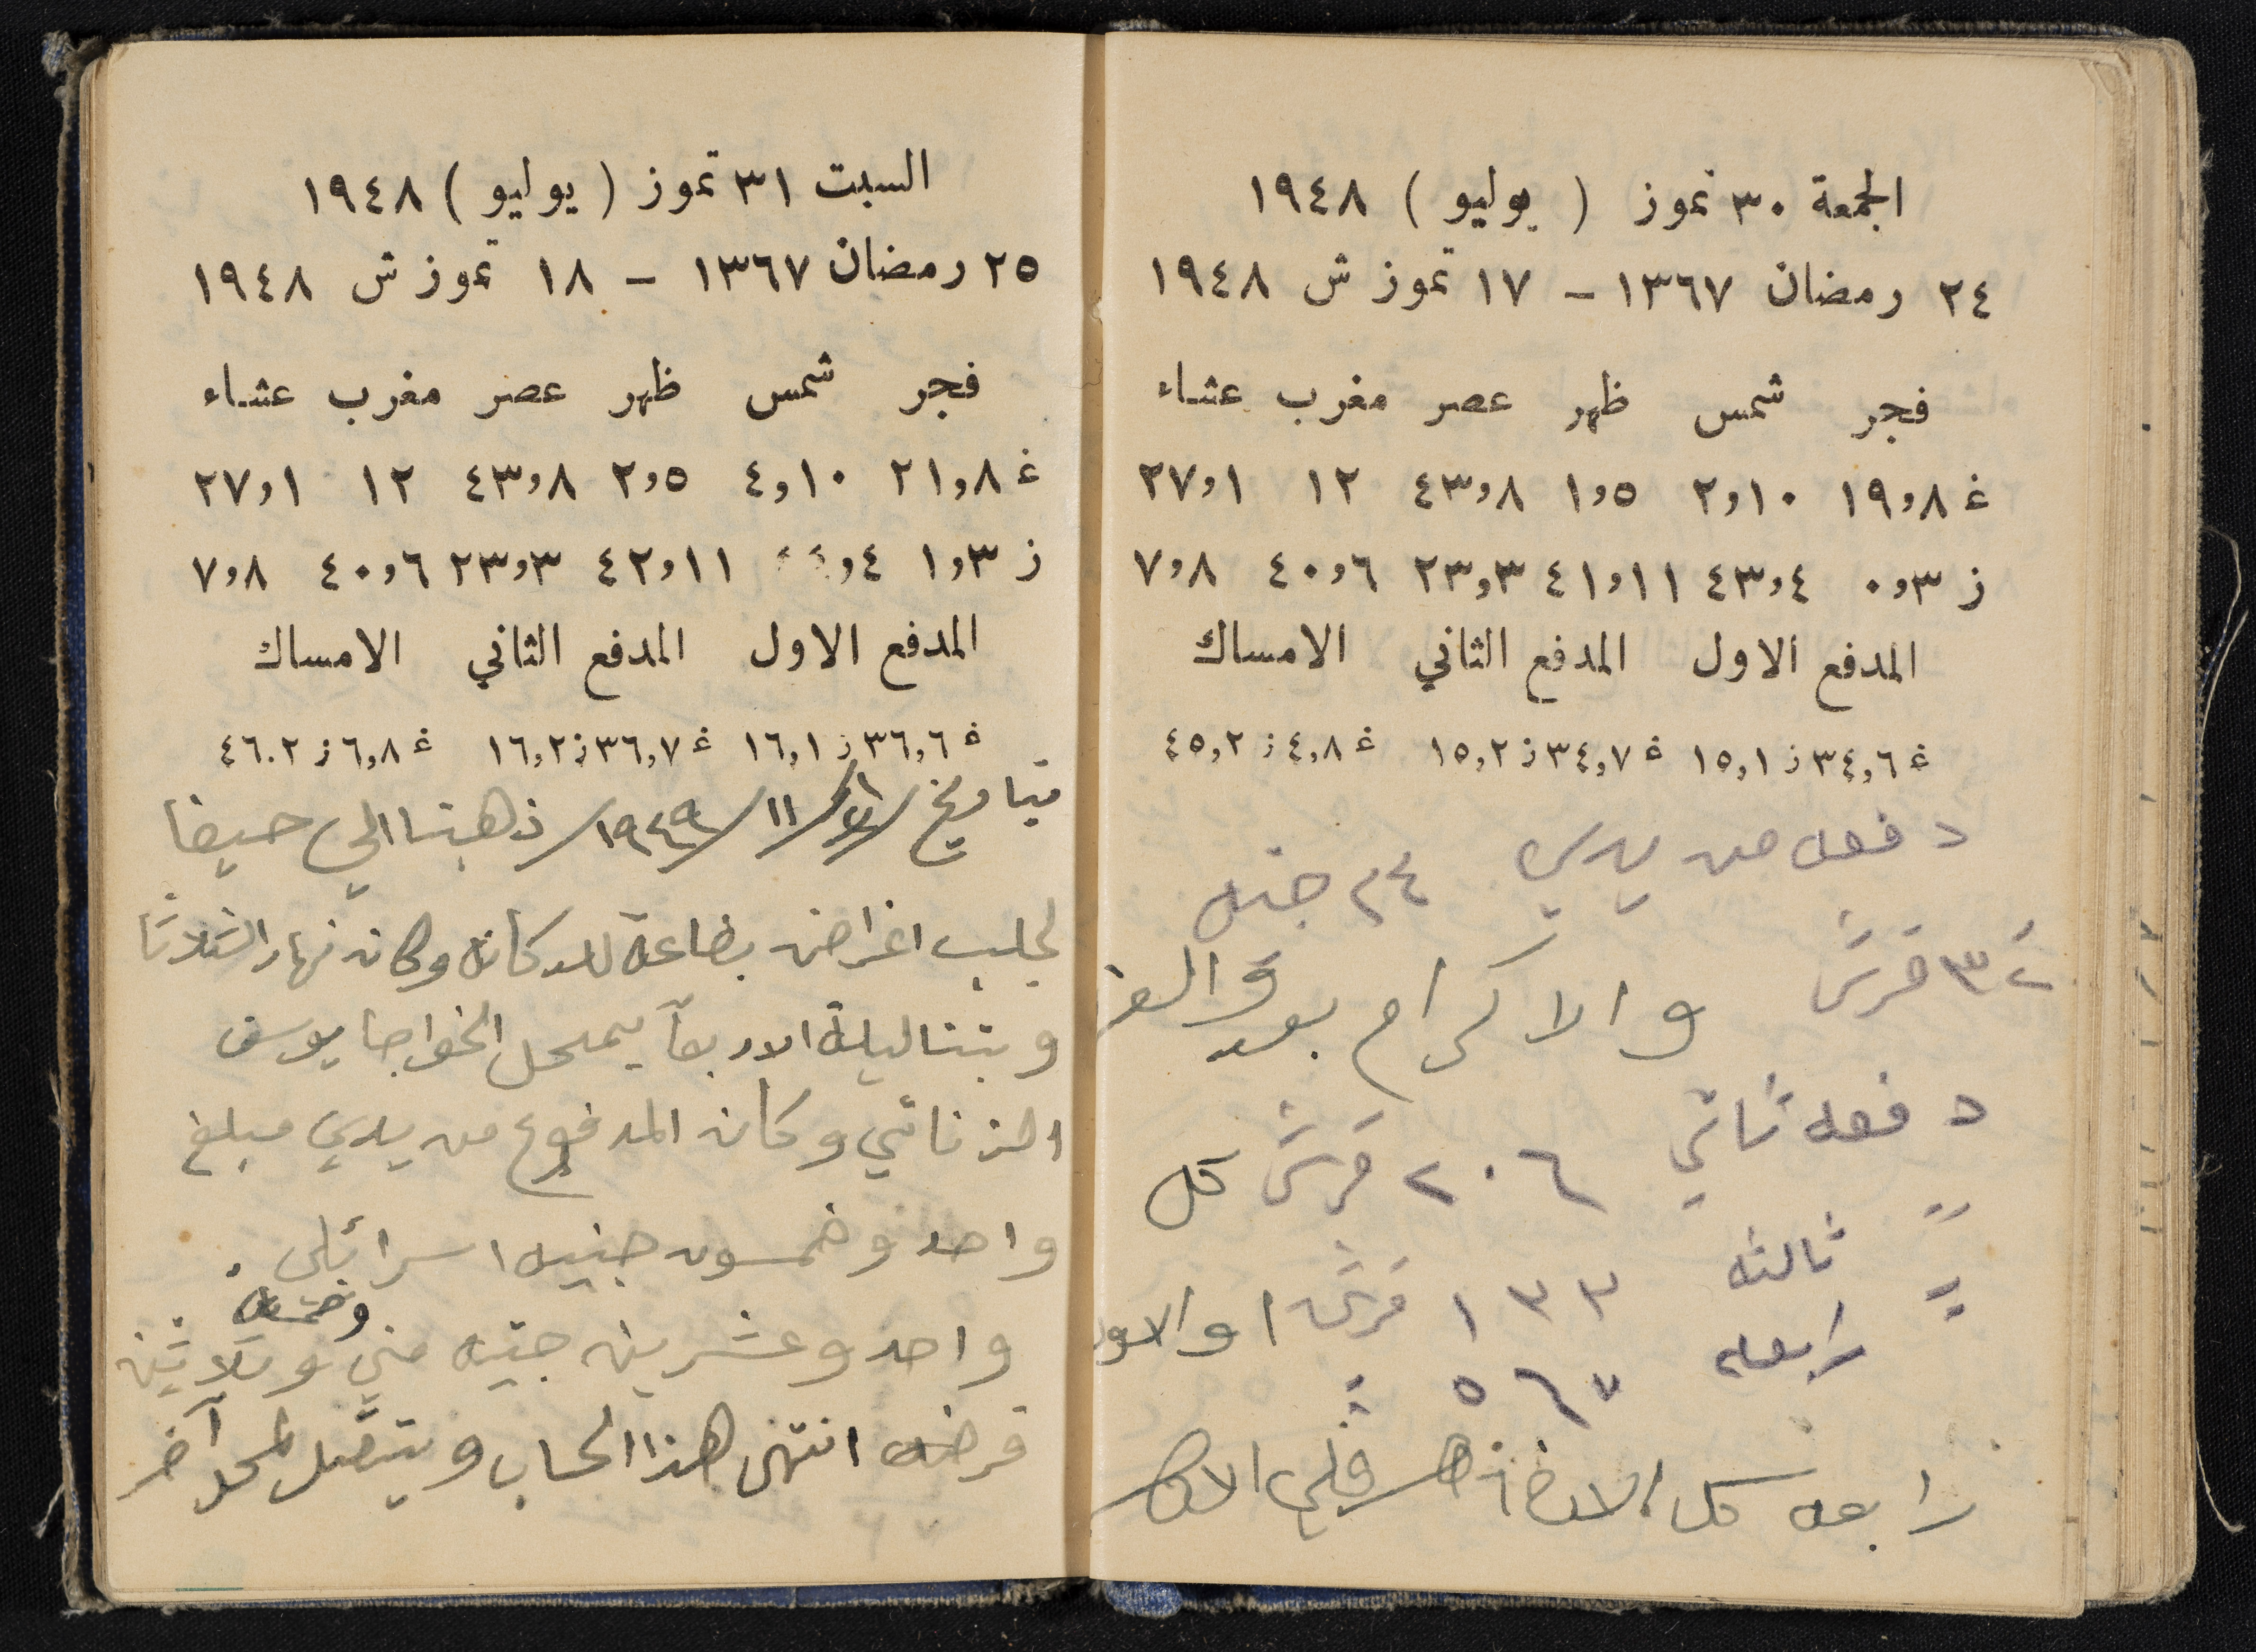 الجمعة ٣٠ تموز ( يوليو ) ١٩٤٨
٢٤ رمضان ١٣٦٧ - ١٧ تموز ش ١٩٤٨
فجر شمس ظهر عصر مغرب عشاء
غ ١٩،٨ ٢،١٠ ١،٥ ٤٣،٨ ١٢ ٢٧،١
ز ٠،٣ ٤٣،٤ ٤١،١١ ٢٣،٣ ٤٠،٦ ٧،٨
المدفع الاول المدفع الثاني الامساك
غ ٣٤،٦ ز ١٥،١ غ ٣٤،٧ ز ١٥،٢ غ ٤،٨ ز ٤٥،٢
دفعه من يدي ٢٤ جنه
٣٢ قرش والاكرام بعد
دفعه ثاني ٢٠٦ قرش كل
" ثالثه ١٣٣ قرش
" رابعه ٥٦٧
رابعه كل
السبت ٣١ تموز ( يوليو ) ١٩٤٨
٢٥ رمضان ١٣٦٧ - ١٨ تموز ش ١٩٤٨
فجر شمس ظهر عصر مغرب عشاء
غ ٢١،٨ ٤،١٠ ٢،٥ ٤٣،٨ ١٢ ٢٧،١
ز ١،٣ ٤، ٤٢،١١ ٢٣،٣ ٤٠،٦ ٧،٨
المدفع الاول المدفع الثاني الامساك
غ ٣٦،٦ ز ١٦،١ غ ٣٦،٧ ز ١٦،٢ غ ٦،٨ ز ٤٦.٢
بتاريخ / ١١/ ١٩٤٩/ ذهبنا الي حيفا
لجلب اغراض بضاعة للدكانه وكان نهار الثلاثا
وبتنا ليلة الاربعآ بمحل الخواجا يوسف
الزناتي وكان المدفوع من يدي مبلغ
واحد وخمسون جنيه اسرائلي .
واحد وعشرين جنيه مني وثلاثين
وخمسه
قرضه انتهى هذا الحساب ويتصل لمحل آخر